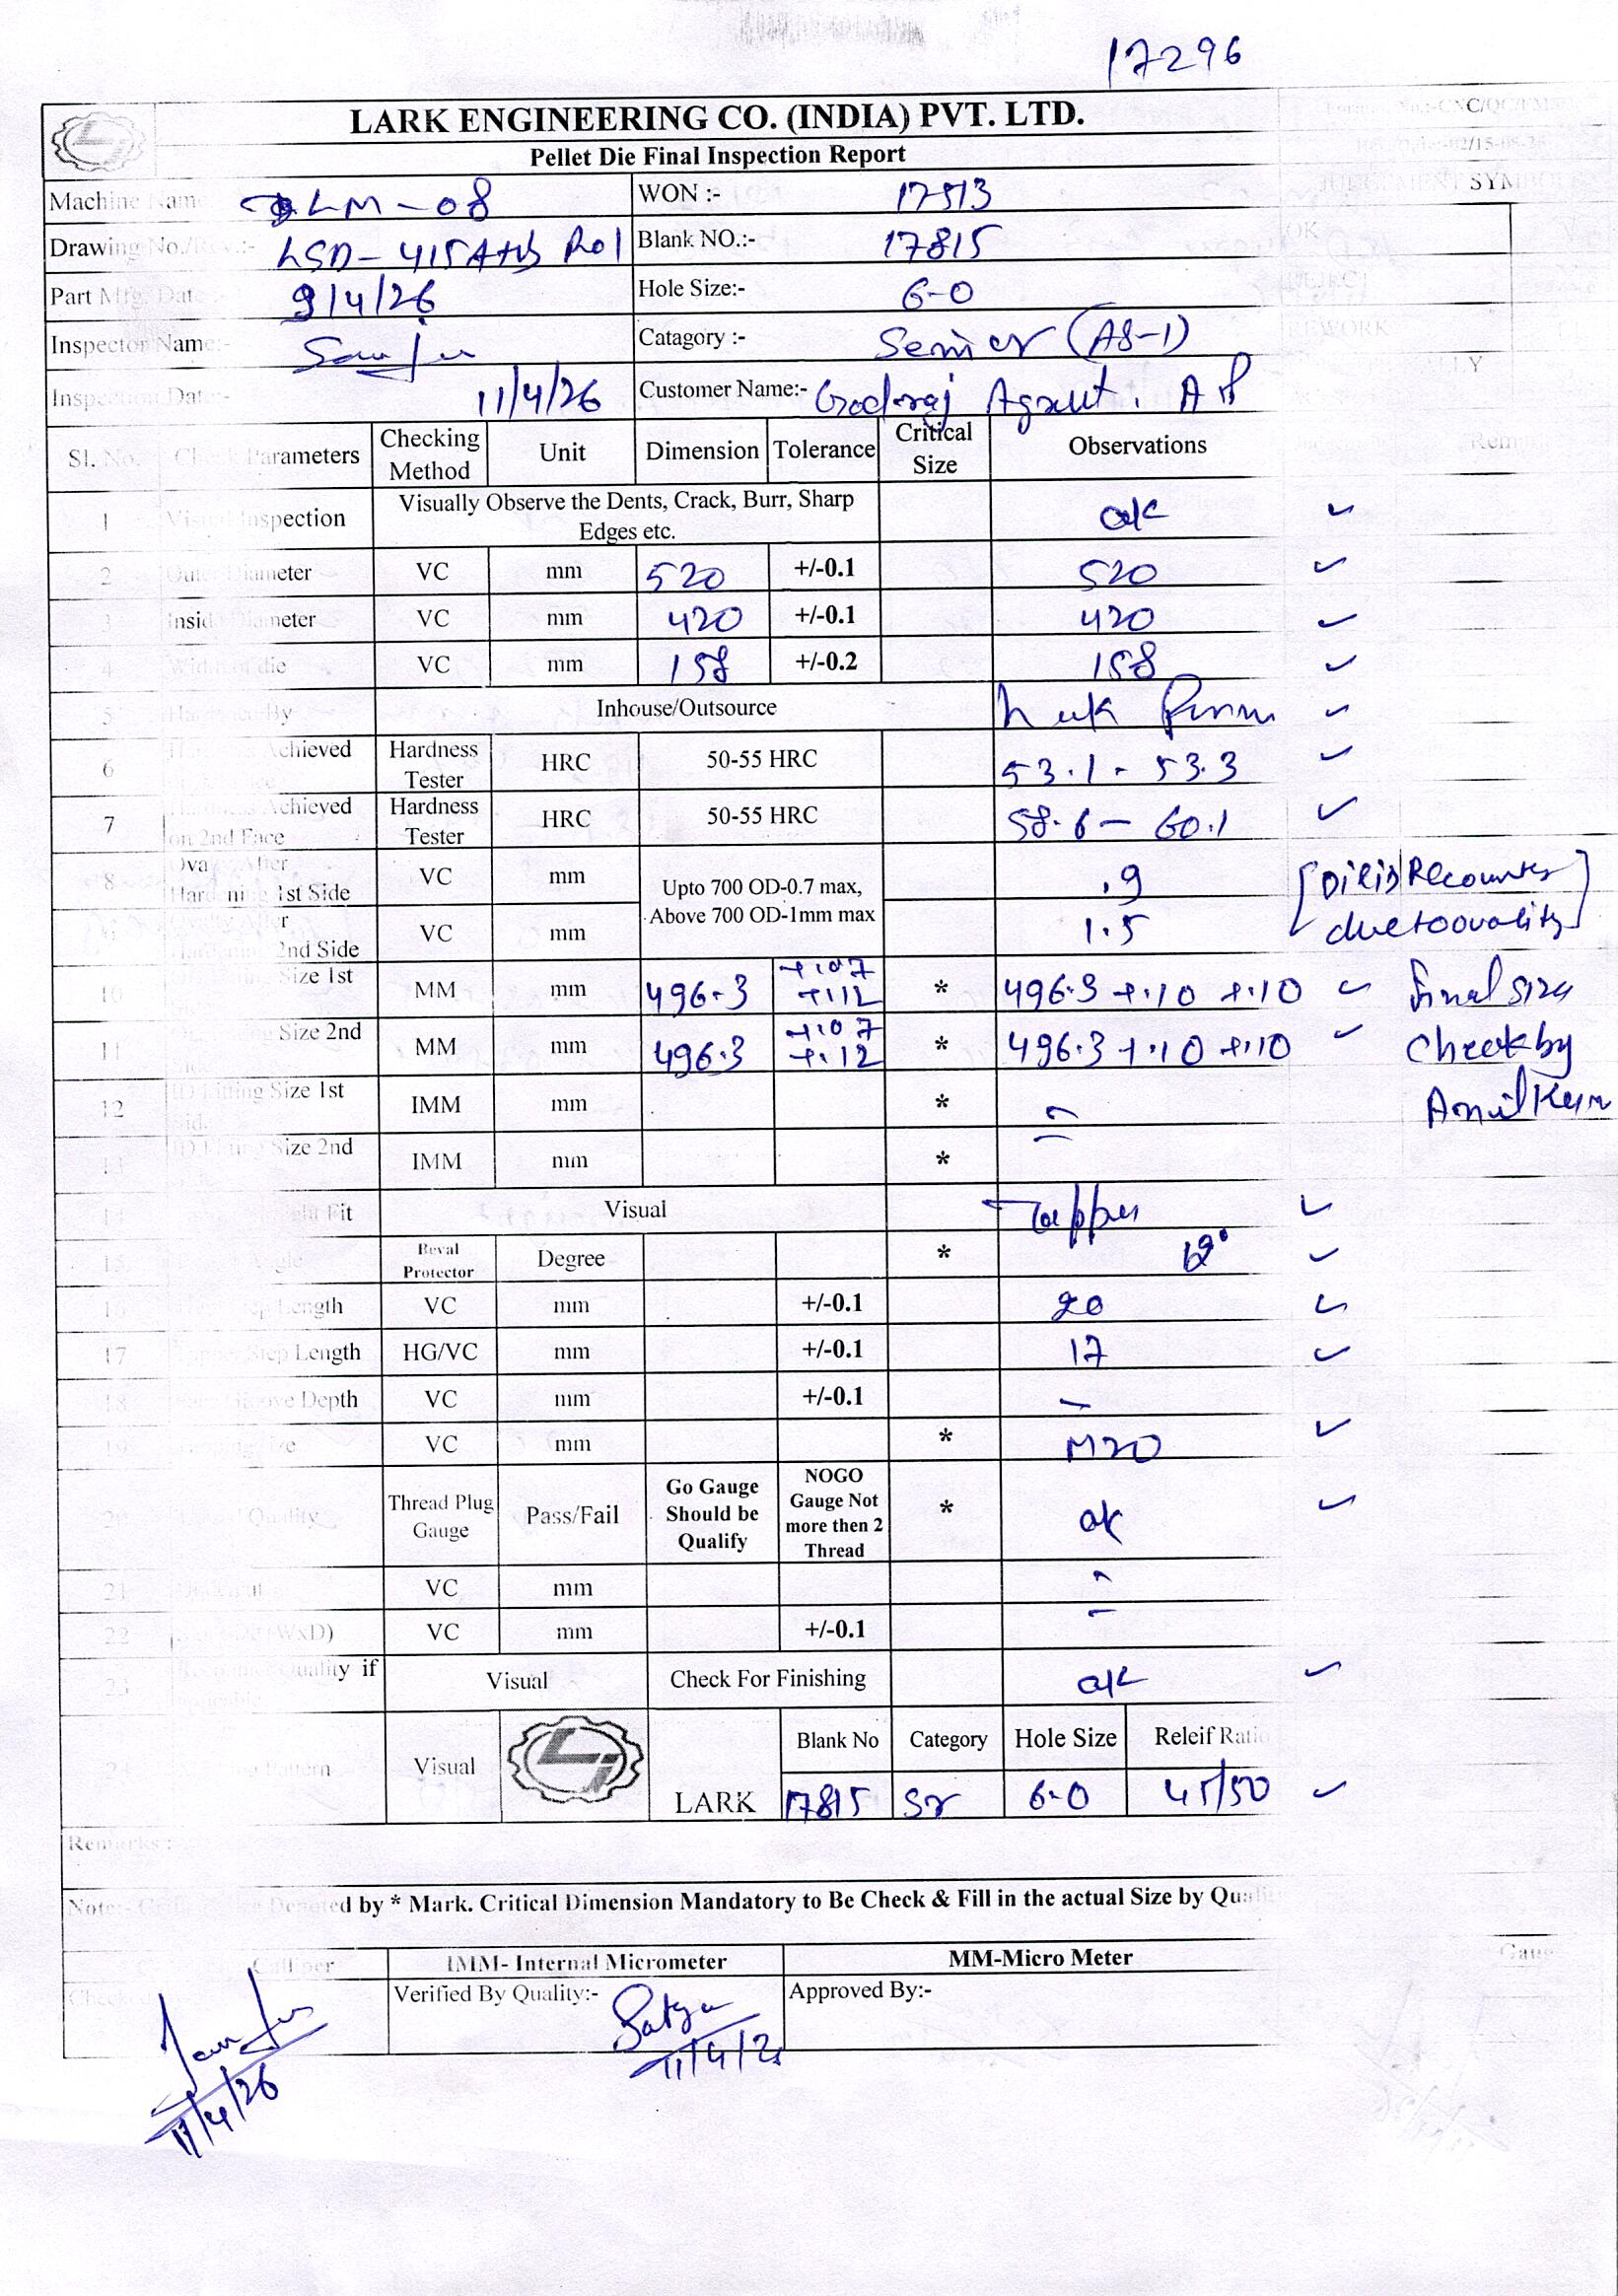 17296
LARK ENGINEERING CO. (INDIA) PVT. LTD.
Pellet Die Final Inspection Report
Machine Name LM-08 WON :- 17513
Drawing No./Rev.:- LSD-415 R01 Blank NO.:- 17815
Part Mfg. Date 9/4/26 Hole Size:- 6-0
OK
Inspector Name:- Catagory :- Senior (AS-1)
REWORK
Inspection Date:- 11/4/26 Customer Name:- Godrej Agrovet. A P
Sl. No. Check Parameters Checking Method Unit Dimension Tolerance Critical Size Observations
1 Visual Inspection Visually Observe the Dents, Crack, Burr, Sharp Edges etc. ok ✓
2 Outer Diameter VC mm 520 +/-0.1 520 ✓
3 Inside Diameter VC mm 420 +/-0.1 420 ✓
4 Width of die VC mm 158 +/-0.2 158 ✓
5 Hardened By Inhouse/Outsource ✓
6 Achieved Hardness Tester HRC 50-55 HRC 53.1 - 53.3 ✓
7 Hardness Achieved on 2nd Face Hardness Tester HRC 50-55 HRC 58.6 - 60.1 ✓
8 Hardening 1st Side VC mm Upto 700 OD-0.7 max, Above 700 OD-1mm max .9
2nd Side VC mm 1.5 due to ovality
10 Size 1st MM mm 496.3 +.07 +.12 * 496.3 +.10 +.10 ✓ final size
11 Size 2nd MM mm 496.3 +.07 +.12 * 496.3 +.10 +.10 ✓ Check by
12 ID Fitting Size 1st IMM mm * - Anil Kum
13 ID Fitting Size 2nd IMM mm *
14 Fit Visual Tapper ✓
15 Beval Protector Degree * ✓
16 Length VC mm +/-0.1 20 ✓
17 Step Length HG/VC mm +/-0.1 17 ✓
18 Groove Depth VC mm +/-0.1 -
19 VC mm * M20 ✓
20 Quality Thread Plug Gauge Pass/Fail Go Gauge Should be Qualify NOGO Gauge Not more then 2 Thread * ok ✓
21 VC mm -
22 (WxD) VC mm +/-0.1 -
23 Quality if Visual Check For Finishing ok ✓
24 Pattern Visual LARK Blank No Category Hole Size Releif Ratio
17815 Sr 6-0 45/50 ✓
Remarks :
Note:- Denoted by * Mark. Critical Dimension Mandatory to Be Check & Fill in the actual Size by
Calliper IMM- Internal Micrometer MM-Micro Meter
Verified By Quality:- Satya Approved By:-
11/4/2
11/4/26